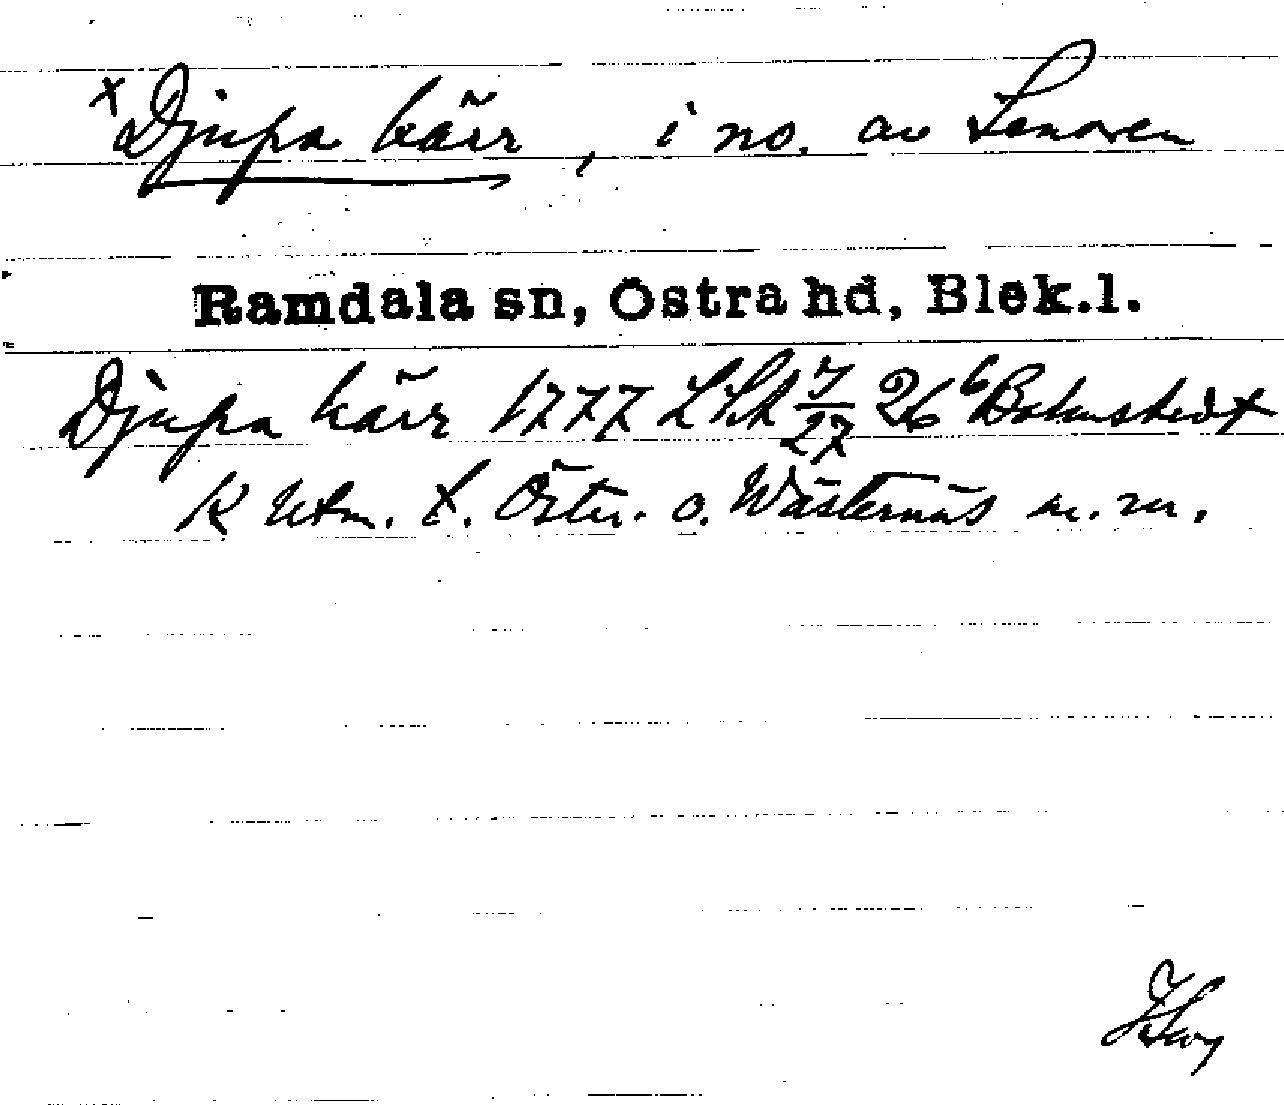 x Djupa kärr, i no. av Senoren
Ramdala sn, Östra hd, Blek.l.
Djupa kärr 1777 LSA 7/27 26 b Bohmstedt
K Utm. t. Öster. o. Wästernäs m. m.